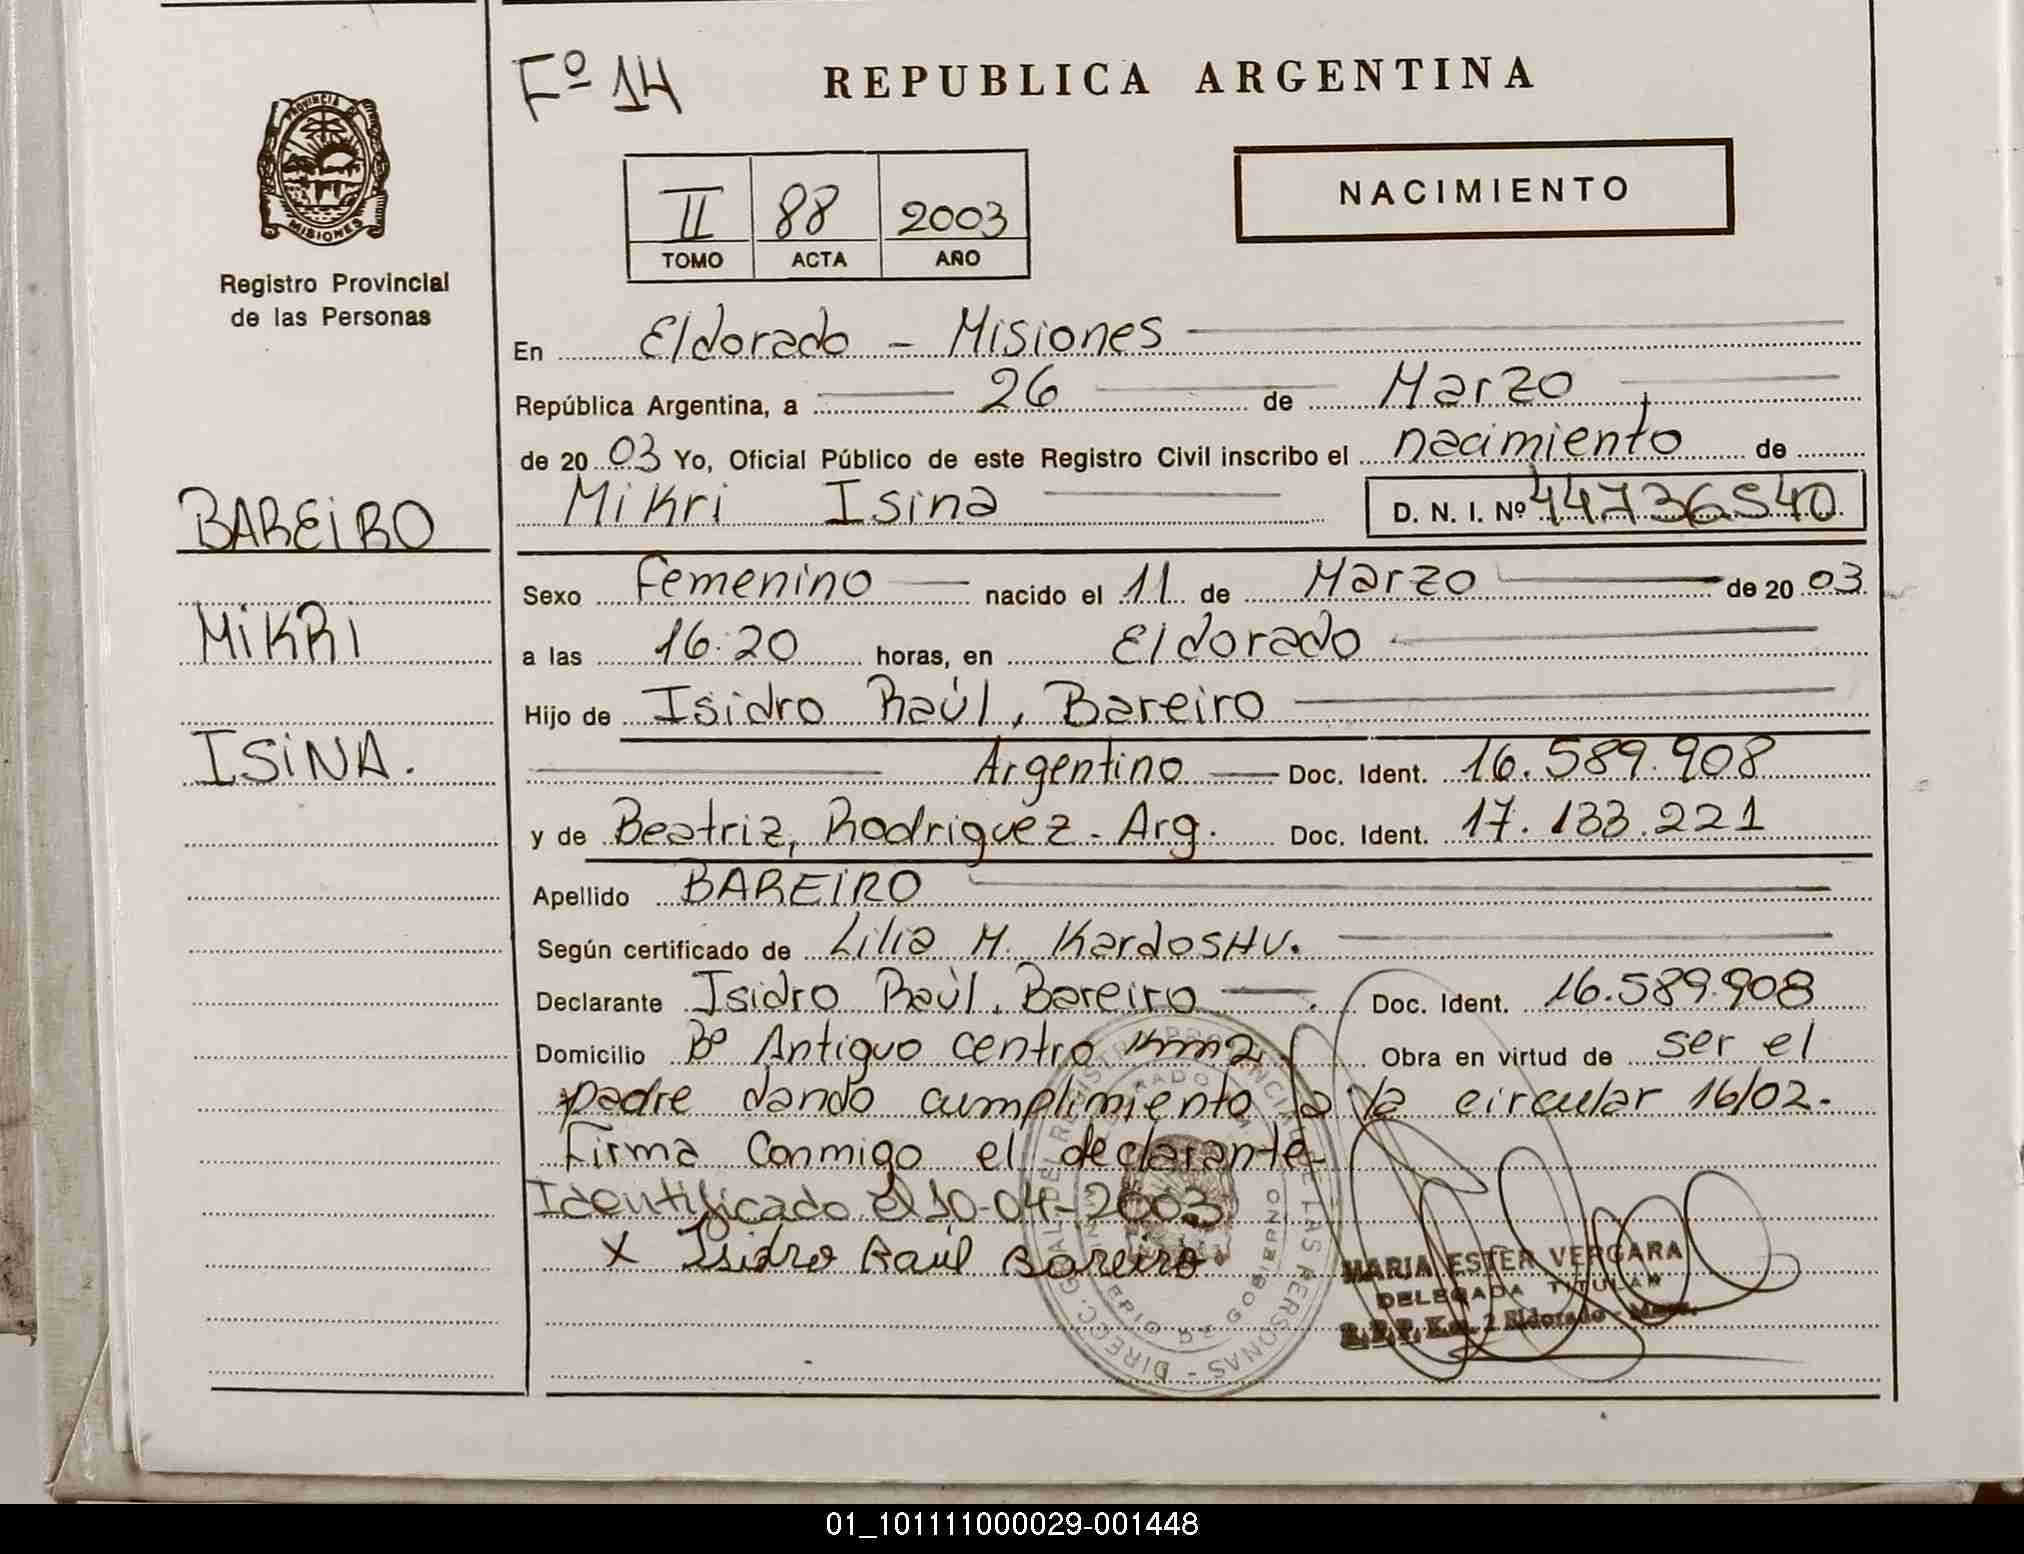 Fº 14
REPUBLICA ARGENTINA
PROVINCIA DE
MISIONES
Registro Provincial
de las Personas
II 88 2003
TOMO ACTA AÑO
NACIMIENTO
En Eldorado - Misiones
República Argentina, a 26 de Marzo
de 2003 Yo, Oficial Público de este Registro Civil inscribo el nacimiento de
Mikri Isina D. N. I. Nº 44736540
BAREIRO
MIKRI
ISINA.
Sexo Femenino nacido el 11 de Marzo de 2003
a las 16:20 horas, en Eldorado
Hijo de Isidro Raúl, Bareiro
Argentino Doc. Ident. 16.589.908
y de Beatriz, Rodriguez - Arg. Doc. Ident. 17.133.221
Apellido BAREIRO
Según certificado de Lilia M. Kardos
Declarante Isidro Raùl, Bareiro Doc. Ident. 16.589.908
Domicilio Bº Antiguo centro Km2. Obra en virtud de ser el
padre dando cumplimiento a la circular 16/02.
Firma Conmigo el declarante-
Identificado el 10-04-2003
x Isidro Raúl Bareiro
MARIA ESTER VERGARA
DELEGADA TITULAR
R.P.P. Km. 2 Eldorado - Mnes.
DIRECC. GRAL. DEL REGISTRO PROVINCIAL DE LAS PERSONAS -
MINISTERIO DE GOBIERNO
01_101111000029-001448